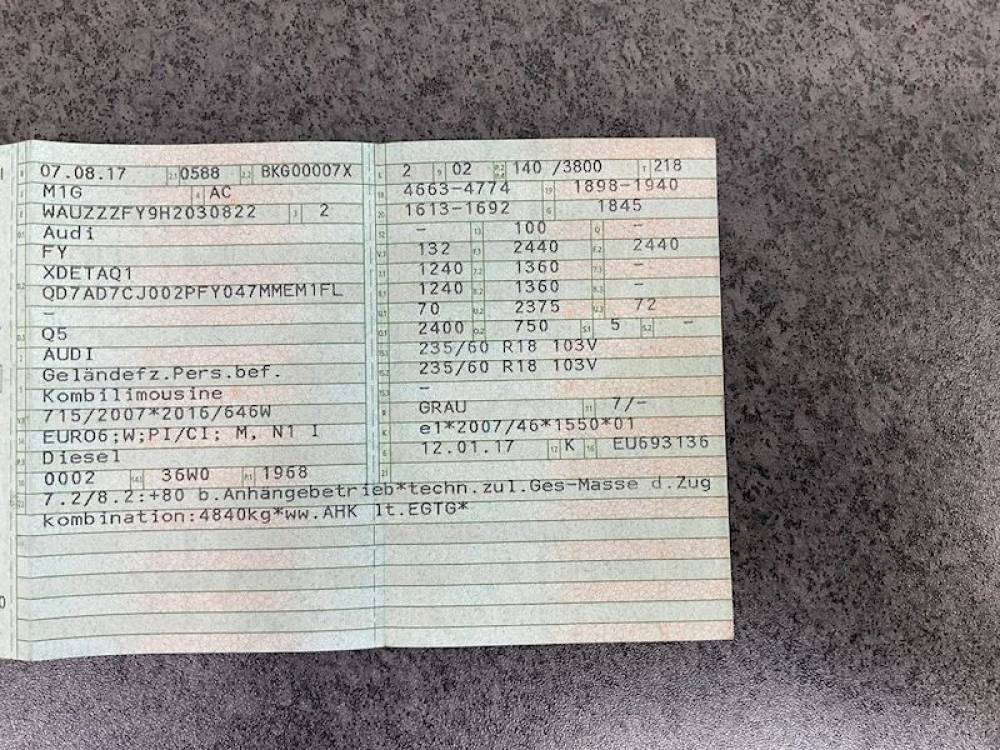 07.08.17 2.1 0588 2.2 BKG00007X
M1G 4 AC
WAUZZZFY9H2030822 3 2
Audi
FY
XDETAQ1
QD7AD7CJ002PFY047MMEM1FL
–
Q5
AUDI
Geländefz.Pers.bef.
Kombilimousine
715/2007*2016/646W
EURO6;W;PI/CI; M, N1 I
Diesel
0002 36W0 P.1 1968
2 9 02 140 /3800 T 218
4663-4774 19 1898-1940
1613-1692 G 1845
– 13 100 Q –
132 F.1 2440 F.2 2440
1240 7.2 1360 7.3 –
1240 8.2 1360 8.3 –
70 U.2 2375 U.3 72
2400 O.2 750 S.1 5 S.2 –
235/60 R18 103V
235/60 R18 103V
–
GRAU 11 7/-
e1*2007/46*1550*01
12.01.17 17 K 16 EU693136
21
7.2/8.2:+80 b.Anhängebetrieb*techn.zul.Ges-Masse d.Zug
kombination:4840kg*ww.AHK lt.EGTG*